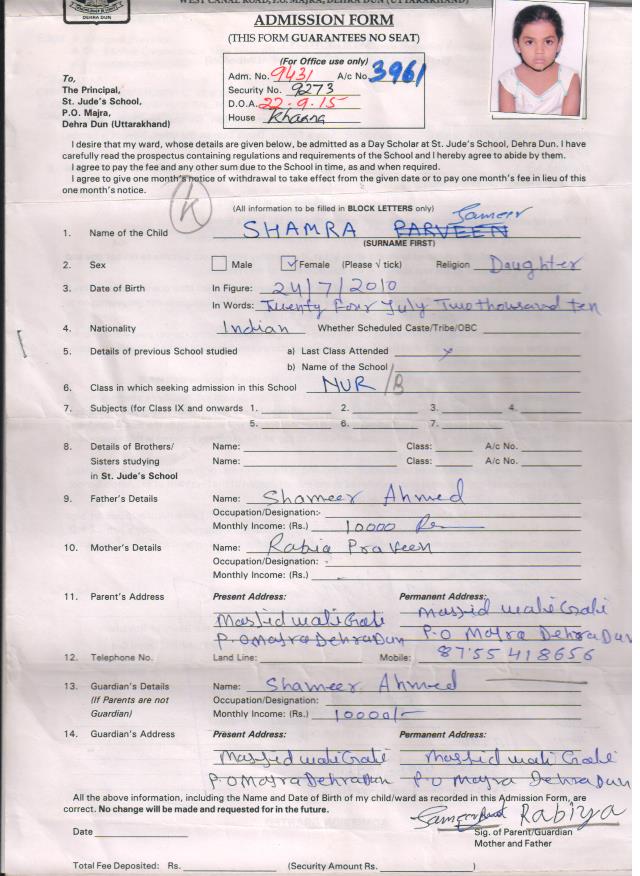 WEST CANAL ROAD, P.O. MAJRA, DEHRA DUN (UTTARAKHAND)
DEHRA DUN
ADMISSION FORM
(THIS FORM GUARANTEES NO SEAT)
(For Office use only)
Adm. No. 9431 A/c No. 3961
Security No. 9273
D.O.A. 22.9.15
House Khanna
To,
The Principal,
St. Jude's School,
P.O. Majra,
Dehra Dun (Uttarakhand)
I desire that my ward, whose details are given below, be admitted as a Day Scholar at St. Jude's School, Dehra Dun. I have
carefully read the prospectus containing regulations and requirements of the School and I hereby agree to abide by them.
I agree to pay the fee and any other sum due to the School in time, as and when required.
I agree to give one month's notice of withdrawal to take effect from the given date or to pay one month's fee in lieu of this
one month's notice.
K
(All information to be filled in BLOCK LETTERS only)
Sameer
1. Name of the Child SHAMRA PARVEEN
(SURNAME FIRST)
2. Sex Male Female (Please √ tick) Religion Daughter
3. Date of Birth In Figure: 24/7/2010
In Words: Twenty Four July Two thousand ten
4. Nationality Indian Whether Scheduled Caste/Tribe/OBC
5. Details of previous School studied a) Last Class Attended
b) Name of the School
6. Class in which seeking admission in this School NUR /B
7. Subjects (for Class IX and onwards 1. 2. 3. 4.
5. 6. 7.
8. Details of Brothers/ Name: Class: A/c No.
Sisters studying Name: Class: A/c No.
in St. Jude's School
9. Father's Details Name: Shameer Ahmed
Occupation/Designation:-
Monthly Income: (Rs.) 10000
10. Mother's Details Name: Rabia Praveen
Occupation/Designation: -
Monthly Income: (Rs.)
11. Parent's Address Present Address: Permanent Address:
Masjid wali Gali Masjid wali Gali
P.O Majra Dehra Dun P.O Majra Dehra Dun
12. Telephone No. Land Line: Mobile: 8755418656
13. Guardian's Details Name: Shameer Ahmed
(If Parents are not Occupation/Designation:
Guardian) Monthly Income: (Rs.) 10000/-
14. Guardian's Address Present Address: Permanent Address:
Masjid wali Gali Masjid wali Gali
P.O Majra Dehra Dun P.O Majra Dehra Dun
All the above information, including the Name and Date of Birth of my child/ward as recorded in this Admission Form, are
correct. No change will be made and requested for in the future.
Rabiya
Date Sig. of Parent/Guardian
Mother and Father
Total Fee Deposited: Rs. (Security Amount Rs. )